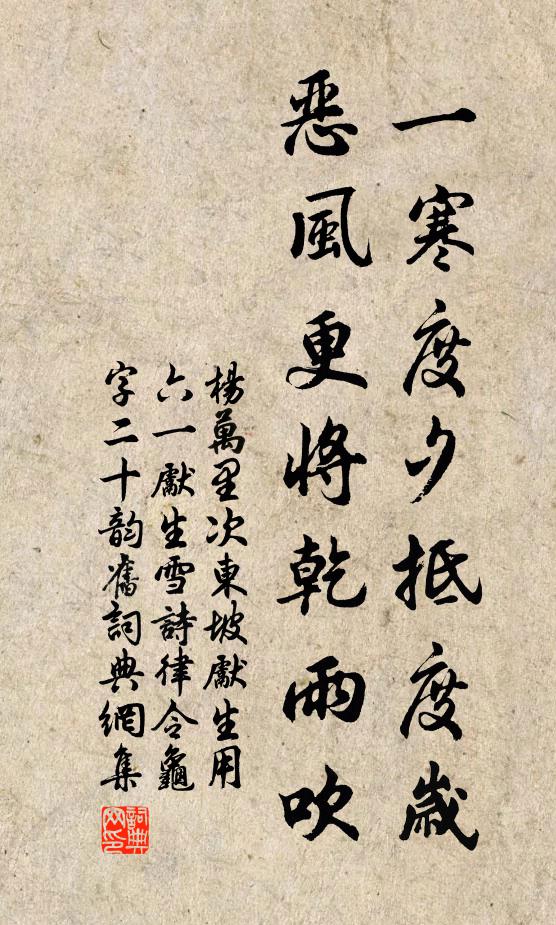 一寒度夕抵度歲
惡風更將乾雨吹
楊萬里次東坡獻生用
六一獻生雪詩律令龜
字二十韵舊詞典網集
詞典
网印